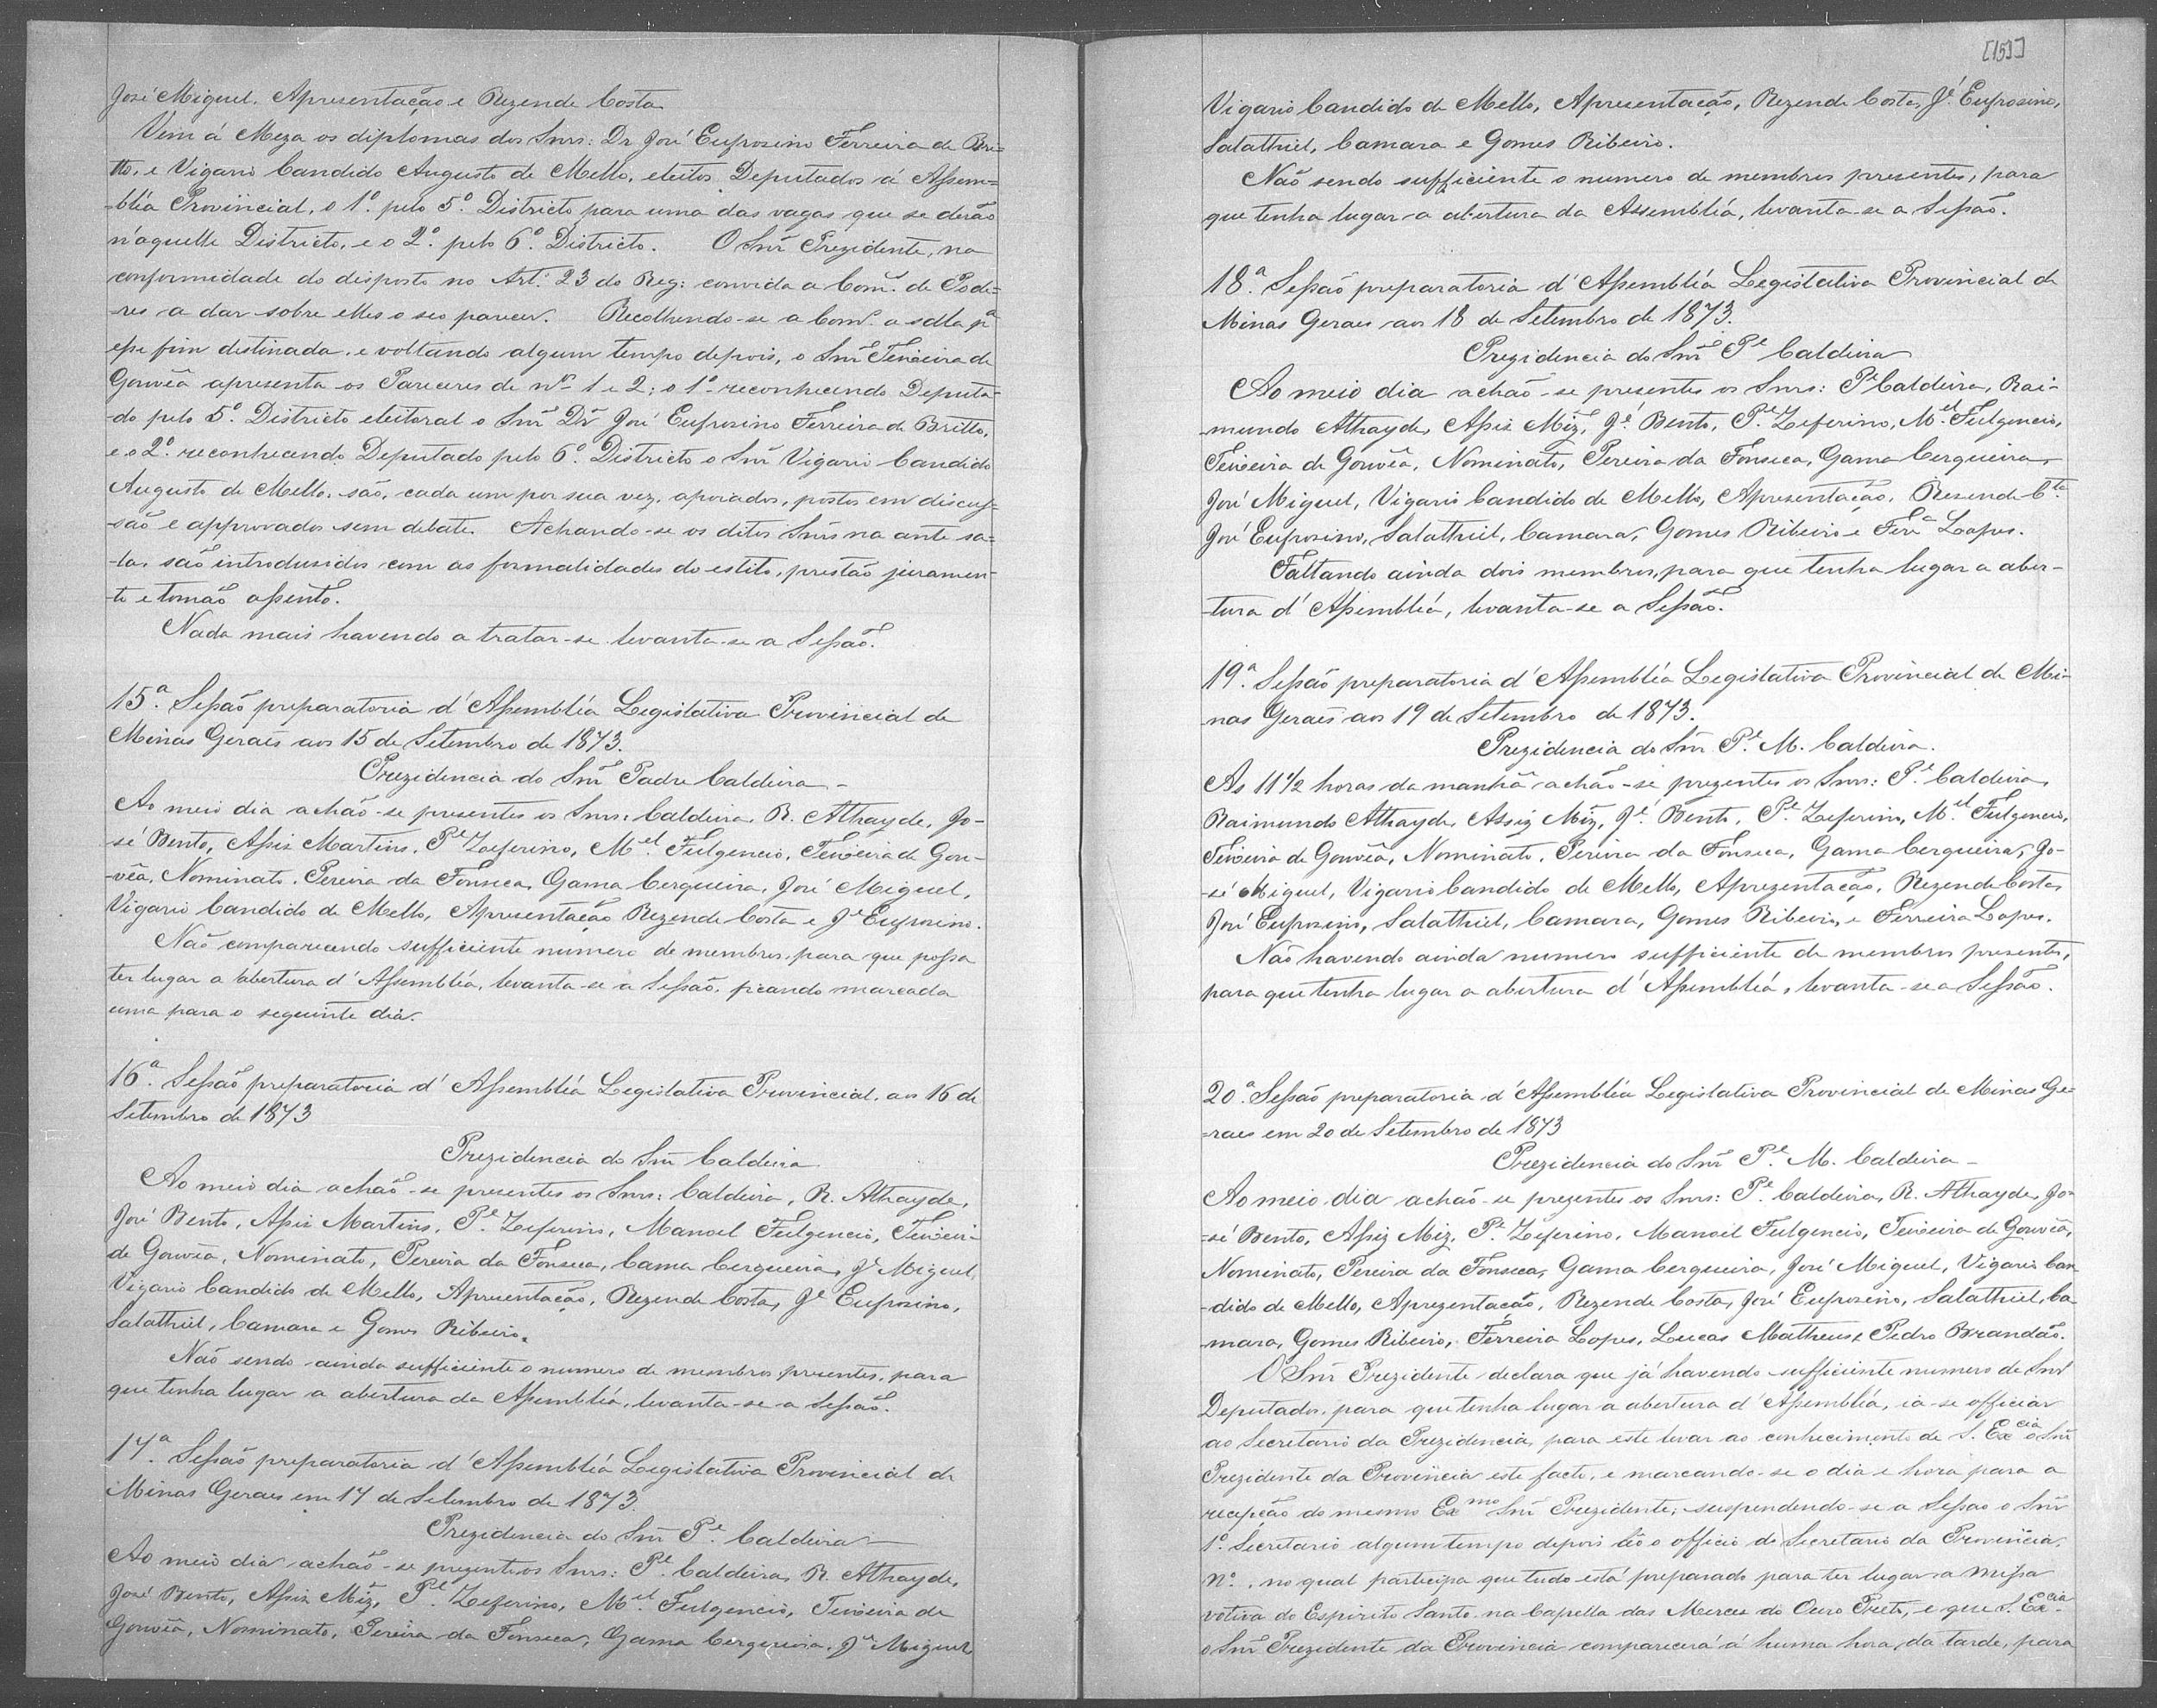 José Miguel. Apresentação e Rezende Costa
Vem á Meza os diplomas dos Snrs: Dr José Eufrosino Ferreira de Bri=
tto, e Vigario Candido Augusto de Mello, eleitos Deputados á Assem=
=bléa Provincial, o 1º. pelo 5º. Districto para uma das vagas que se derão
n'aquelle Districto, e o 2º. pelo 6º. Districto. O Snr Prezidente, na
conformidade do disposto no Art: 23 do Reg: convida a Com. de Pode=
=res a dar sobre elles o seo parecer. Recolhendo-se a Com. a salla pª
esse fim distinada, e voltando algum tempo depois, o Snr Teixeira de
Gouvêa apresenta os Pareceres de nos 1 e 2; o 1º reconhecendo Deputa-
-do pelo 5º. Districto eleitoral o Snr Dr José Eufrosino Ferreira de Britto,
e o 2º. reconhecendo Deputado pelo 6º. Districto o Snr Vigario Candido
Augusto de Mello, são, cada um por sua vez, apoiados, postos em discus-
-são e approvados sem debate. Achando-se os ditos Snrs na ante sa=
-la, são introdusidos com as formalidades do estilo, prestão juramen-
-to e tomão assento.
Nada mais havendo a tratar-se levanta-se a Sessão.
15ª. Sessão preparatoria d'Assembléa Legislativa Provincial de
Minas Geraes aos 15 de Setembro de 1873.
Prezidencia do Snr Padre Caldeira -
Ao meio dia achão-se presentes os Snrs: Caldeira, R. Athayde, Jo-
sé Bento, Assis Martins, Pe Zeferino, Mel. Fulgencio, Teixeira de Gou-
-vêa, Nominato, Pereira da Fonseca, Gama Cerqueira, José Miguel,
Vigario Candido de Mello, Apresentação Rezende Costa e Jé Eufrosino.
Não comparecendo sufficiente numero de membros, para que possa
ter lugar a abertura d'Assembléa, levanta-se a Sessão, ficando marcada
uma para o seguinte dia.
16ª. Sessão preparatoria d'Assembléa Legislativa Provincial, aos 16 de
Setembro de 1873
Prezidencia do Snr Caldeira
Ao meio dia achão-se presentes os Snrs: Caldeira, R. Athayde,
José Bento, Assis Martins, Pe. Zeferino, Manoel Fulgencio, Teixeira
de Gouvêa, Nominato, Pereira da Fonseca, Cama Cerqueira, Jé Miguel,
Vigario Candido de Mello, Apresentação, Rezende Costa, Jé Eufrosino,
Salathiel, Camara e Gomes Ribeiro.
Não sendo ainda sufficiente o numero de membros presentes, para
que tenha lugar a abertura da Assembléa, levanta-se a Sessão.
17ª. Sessão preparatoria d'Assembléa Legislativa Provincial de
Minas Geraes em 17 de Setembro de 1873.
Prezidencia do Snr Pe. Caldeira -
Ao meio dia achão-se prezentes os Snrs: Pe. Caldeira, R. Athayde,
José Bento, Assis Miz, Pe. Zeferino, Mel. Fulgencio, Teixeira de
Gouvêa, Nominato, Pereira da Fonseca, Gama Cerqueira, Jé Miguel
[151]
Vigario Candido de Mello, Apresentação, Rezende Costa, Jé. Eufrosino,
Salathiel, Camara e Gomes Ribeiro.
Não sendo sufficiente o numero de membros presentes, para
que tenha lugar a abertura da Assembléa, levanta-se a Sessão.
18ª. Sessão preparatoria d'Assembléa Legislativa Provincial de
Minas Geraes aos 18 de Setembro de 1873.
Prezidencia do Snr Pe Caldeira
Ao meio dia achão-se presentes os Snrs: Pe Caldeira, Rai-
-mundo Athayde, Assis Miz, Jé. Bento, Pe. Zeferino, Mel. Fulgencio,
Teixeira de Gouvêa, Nominato, Pereira da Fonseca, Gama Cerqueira,
José Miguel, Vigario Candido de Mello, Apresentação, Resende Cta.
José Eufrosino, Salathiel, Camara, Gomes Ribeiro e Ferª Lopes.
Faltando ainda dois membros, para que tenha lugar a aber-
-tura d'Assembléa, levanta-se a Sessão.
19ª. Sessão preparatoria d'Assembléa Legislativa Provincial de Mi-
-nas Geraes aos 19 de Setembro de 1873.
Prezidencia do Snr Pe. M. Caldeira.
As 11 1/2 horas da manhã achão-se prezentes os Snrs: Pe. Caldeira,
Raimundo Athayde, Assiz Miz, Jé. Bento, Pe. Zeferino, Mel. Fulgencio,
Teixeira de Gouvêa, Nominato, Pereira da Fonseca, Gama Cerqueira, Jo-
-sé Miguel, Vigario Candido de Mello, Aprezentação, Rezende Costa,
José Eufrosino, Salathiel, Camara, Gomes Ribeiro, e Ferreira Lopes.
Não havendo ainda numero sufficiente de membros presentes,
para que tenha lugar a abertura d'Assembléa, levanta-se a Sessão.
20ª. Sessão preparatoria d'Assembléa Legislativa Provincial de Minas Ge=
=raes em 20 de Setembro de 1873
Prezidencia do Snr Pe. M. Caldeira -
Ao meio dia achão-se prezentes os Snrs: Pe. Caldeira, R. Athayde, Jo=
=sé Bento, Assiz Miz, Pe. Zeferino, Manoel Fulgencio, Teixeira de Gouvêa,
Nominato, Pereira da Fonseca, Gama Cerqueira, José Miguel, Vigario Can
-dido de Mello, Aprezentação, Rezende Costa, José Eufrosino, Salathiel, Ca
-mara, Gomes Ribeiro, Ferreira Lopes, Lucas Matheus e Pedro Brandão.
O Snr Prezidente declara que já havendo sufficiente numero de Snrs
Deputados, para que tenha lugar a abertura d'Assembléa, ia-se officiar
ao Secretario da Prezidencia, para este levar ao conhecimento de S. Excia o Snr
Prezidente da Provincia este facto, e marcando-se o dia e hora para a
recepção do mesmo Exmo Snr Prezidente; suspendendo-se a Sessão o Snr
1º. Secretario algum tempo depois lêo o officio do Secretario da Provincia,
Nº. , no qual participa que tudo está preparado para ter lugar a Missa
votiva do Espirito Santo na Capella das Merces do Ouro Preto, e que S. Excia.
o Snr Prezidente da Provincia comparecerá á huma hora da tarde, para